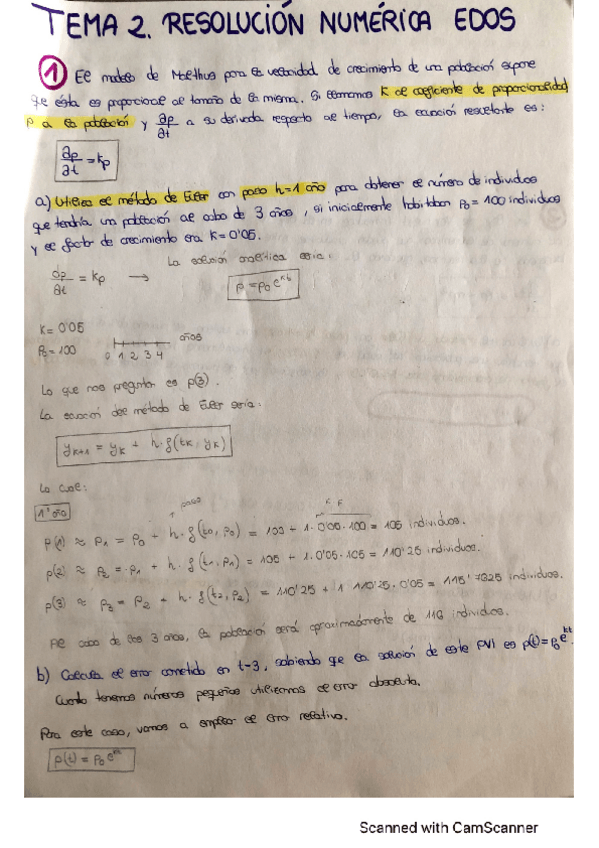 TEMA 2. RESOLUCIÓN NUMÉRICA EDOS
① El modelo de Malthus para la velocidad de crecimiento de una población supone
que ésta es proporcional al tamaño de la misma. Si llamamos K al coeficiente de proporcionalidad,
p a la población y ∂p/∂t a su derivada respecto al tiempo, la ecuación resultante es:
∂p/∂t = kp
a) Utiliza el método de Euler con paso h=1 año para obtener el número de individuos
que tendría una población al cabo de 3 años, si inicialmente habitaban p₀ = 100 individuos
y el factor de crecimiento era K=0'05.
La solución analítica sería:
∂p/∂t = kp → p = p₀e^kt
K= 0'05
p₀= 100
0 1 2 3 4 años
Lo que nos preguntan es p(3).
La ecuación del método de Euler sería:
yₖ₊₁ = yₖ + h·f(tₖ, yₖ)
1º año
paso
p(1) ≈ p₁ = p₀ + h·f(t₀, p₀) = 100 + 1·0'05·100 = 105 individuos.
p(2) ≈ p₂ = p₁ + h·f(t₁, p₁) = 105 + 1·0'05·105 = 110'25 individuos.
p(3) ≈ p₃ = p₂ + h·f(t₂, p₂) = 110'25 + 1 110'25·0'05 = 115'7625 individuos.
Al cabo de los 3 años, la población será aproximadamente de 116 individuos.
b) Calcula el error cometido en t=3, sabiendo que la solución de este PVI es p(t)=p₀e^kt.
Cuando tenemos números pequeños utilizamos el error absoluto.
Para este caso, vamos a emplear el error relativo.
p(t) = p₀e^kt
Scanned with CamScanner